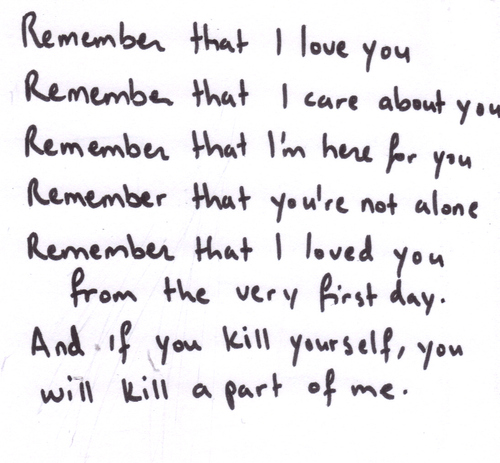 Remember that I love you
Remember that I care about you
Remember that I'm here for you
Remember that you're not alone
Remember that I loved you
from the very first day.
And if you kill yourself, you
will kill a part of me.